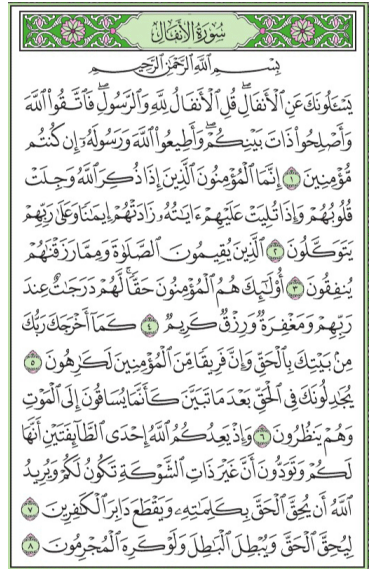 سُورَةُ الأَنفَالِ
بِسْمِ ٱللَّهِ ٱلرَّحْمَٰنِ ٱلرَّحِيمِ
يَسْـَٔلُونَكَ عَنِ ٱلْأَنفَالِ ۖ قُلِ ٱلْأَنفَالُ لِلَّهِ وَٱلرَّسُولِ ۖ فَٱتَّقُوا۟ ٱللَّهَ
وَأَصْلِحُوا۟ ذَاتَ بَيْنِكُمْ ۖ وَأَطِيعُوا۟ ٱللَّهَ وَرَسُولَهُۥٓ إِن كُنتُم
مُّؤْمِنِينَ ١ إِنَّمَا ٱلْمُؤْمِنُونَ ٱلَّذِينَ إِذَا ذُكِرَ ٱللَّهُ وَجِلَتْ
قُلُوبُهُمْ وَإِذَا تُلِيَتْ عَلَيْهِمْ ءَايَٰتُهُۥ زَادَتْهُمْ إِيمَٰنًا وَعَلَىٰ رَبِّهِمْ
يَتَوَكَّلُونَ ٢ ٱلَّذِينَ يُقِيمُونَ ٱلصَّلَوٰةَ وَمِمَّا رَزَقْنَٰهُمْ
يُنفِقُونَ ٣ أُو۟لَٰٓئِكَ هُمُ ٱلْمُؤْمِنُونَ حَقًّا ۚ لَّهُمْ دَرَجَٰتٌ عِندَ
رَبِّهِمْ وَمَغْفِرَةٌ وَرِزْقٌ كَرِيمٌ ٤ كَمَآ أَخْرَجَكَ رَبُّكَ
مِنۢ بَيْتِكَ بِٱلْحَقِّ وَإِنَّ فَرِيقًا مِّنَ ٱلْمُؤْمِنِينَ لَكَٰرِهُونَ ٥
يُجَٰدِلُونَكَ فِى ٱلْحَقِّ بَعْدَ مَا تَبَيَّنَ كَأَنَّمَا يُسَاقُونَ إِلَى ٱلْمَوْتِ
وَهُمْ يَنظُرُونَ ٦ وَإِذْ يَعِدُكُمُ ٱللَّهُ إِحْدَى ٱلطَّآئِفَتَيْنِ أَنَّهَا
لَكُمْ وَتَوَدُّونَ أَنَّ غَيْرَ ذَاتِ ٱلشَّوْكَةِ تَكُونُ لَكُمْ وَيُرِيدُ
ٱللَّهُ أَن يُحِقَّ ٱلْحَقَّ بِكَلِمَٰتِهِۦ وَيَقْطَعَ دَابِرَ ٱلْكَٰفِرِينَ ٧
لِيُحِقَّ ٱلْحَقَّ وَيُبْطِلَ ٱلْبَٰطِلَ وَلَوْ كَرِهَ ٱلْمُجْرِمُونَ ٨